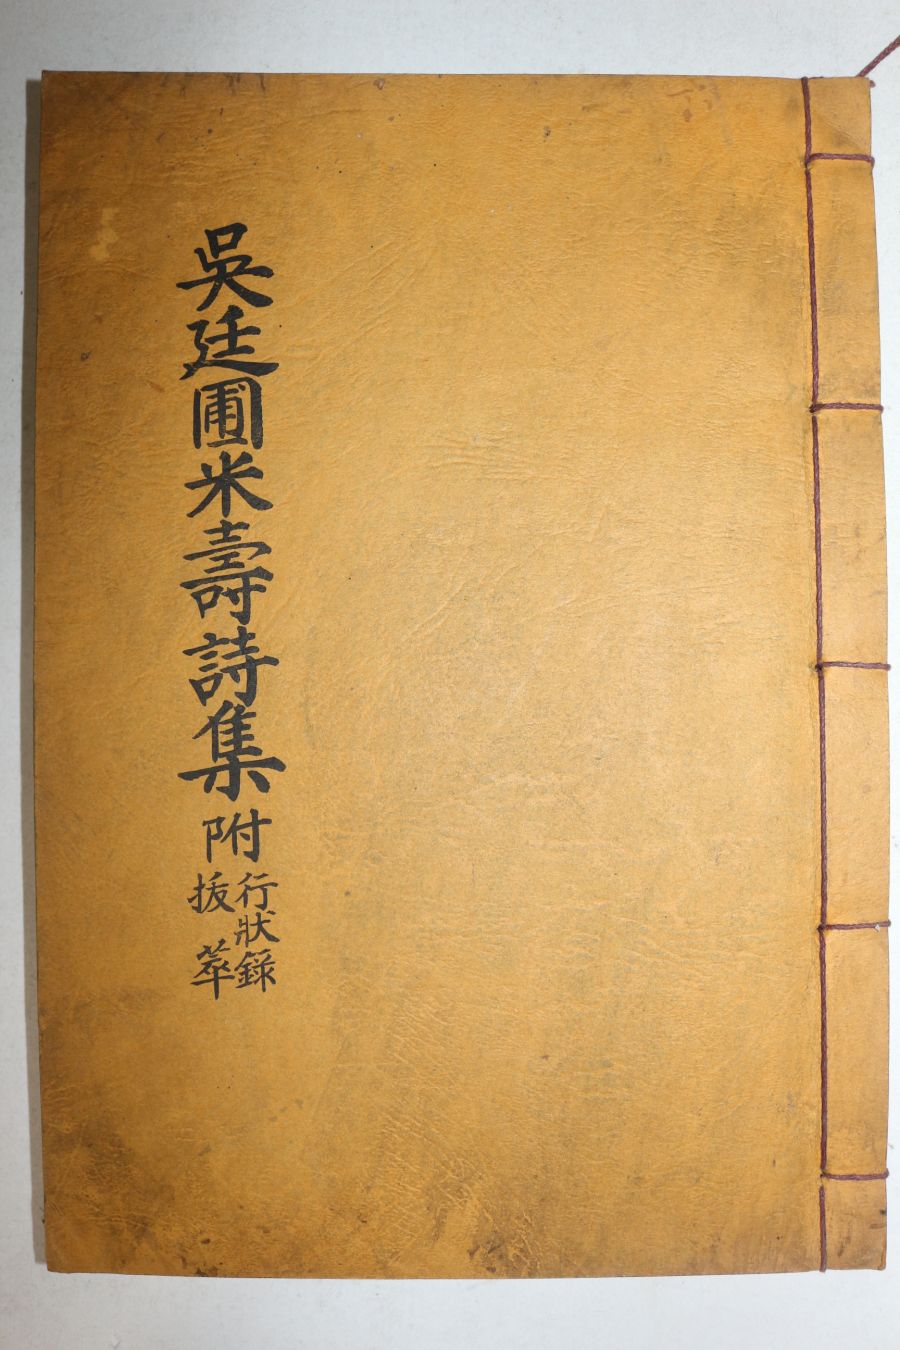 吳廷圃米壽詩集附
行狀錄
拔萃